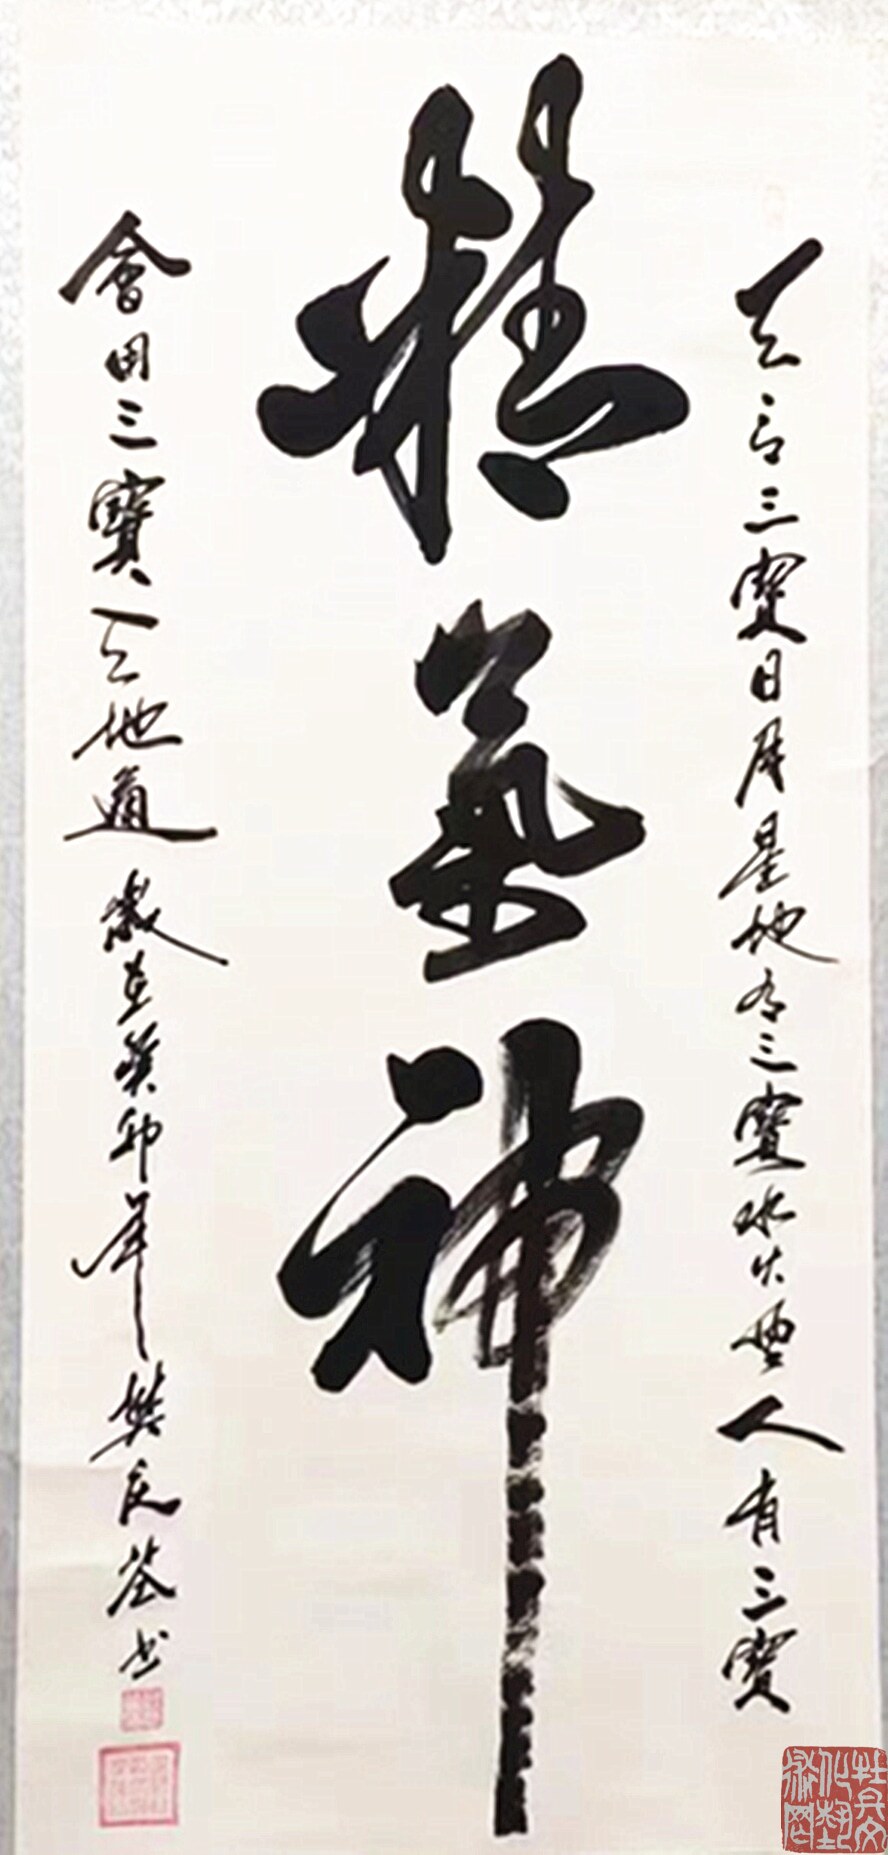 天有三寶日月星地有三寶水火風人有三寶
精氣神
會用三寶天地通 歲在癸卯年樊荃书